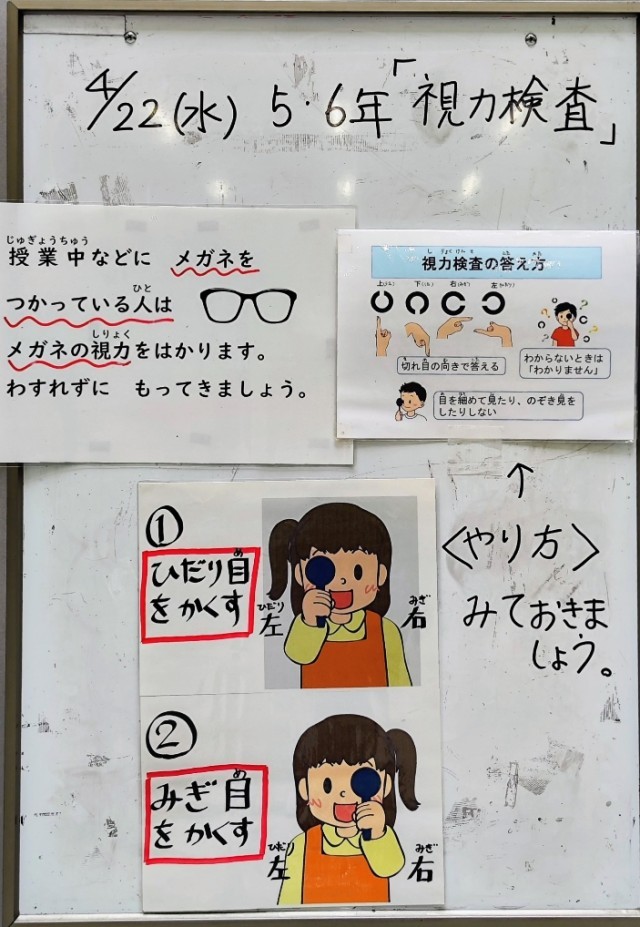 4/22(水) 5・6年「視力検査」
じゅぎょうちゅう
授業中などに メガネを
ひと
つかっている人は
しりょく
メガネの視力をはかります。
わすれずに もってきましょう。
視力検査の答え方
上(うえ) 下(した) 右(みぎ) 左(ひだり)
切れ目の向きで答える
わからないときは
「わかりません」
目を細めて見たり、のぞき見を
したりしない
↑
〈やり方〉
みておきま
しょう。
①
め
ひだり目
をかくす
ひだり
左
みぎ
右
②
め
みぎ目
をかくす
ひだり
左
みぎ
右